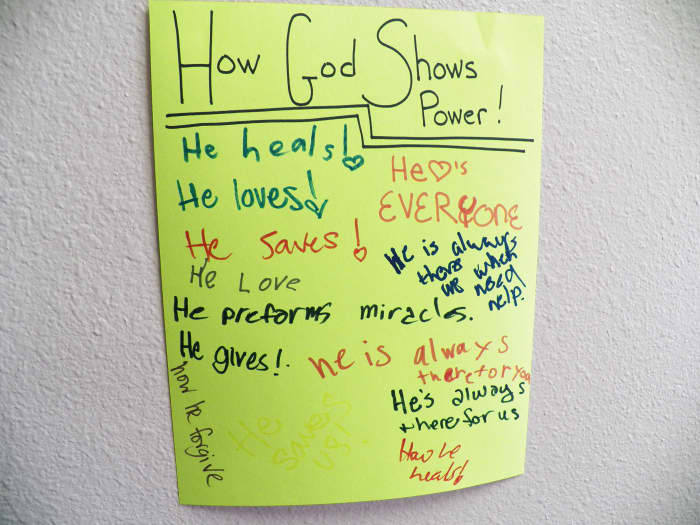 How God Shows
Power!
He heals!
He loves!
He saves!
He Love
He preforms miracles.
He gives!.
how he forgive
He ♡'s
EVERYONE
He is always
there when
we need
help!
he is always
there for you
He's always
there for us
He
saves
us!
How he
heals!